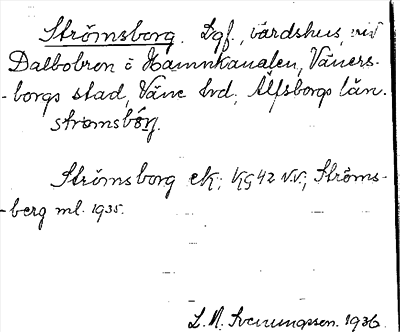 Strömsborg. Lgf., värdshus, vid
Dalbobron o Hamnkanalen, Väners-
-borgs stad, Väne hd, Älfsborgs län.
strømsbôrj.
Strömsborg ek; KG 42 N.V.; Ströms-
-berg ml. 1935.
L. M. Svenungsson. 1936.